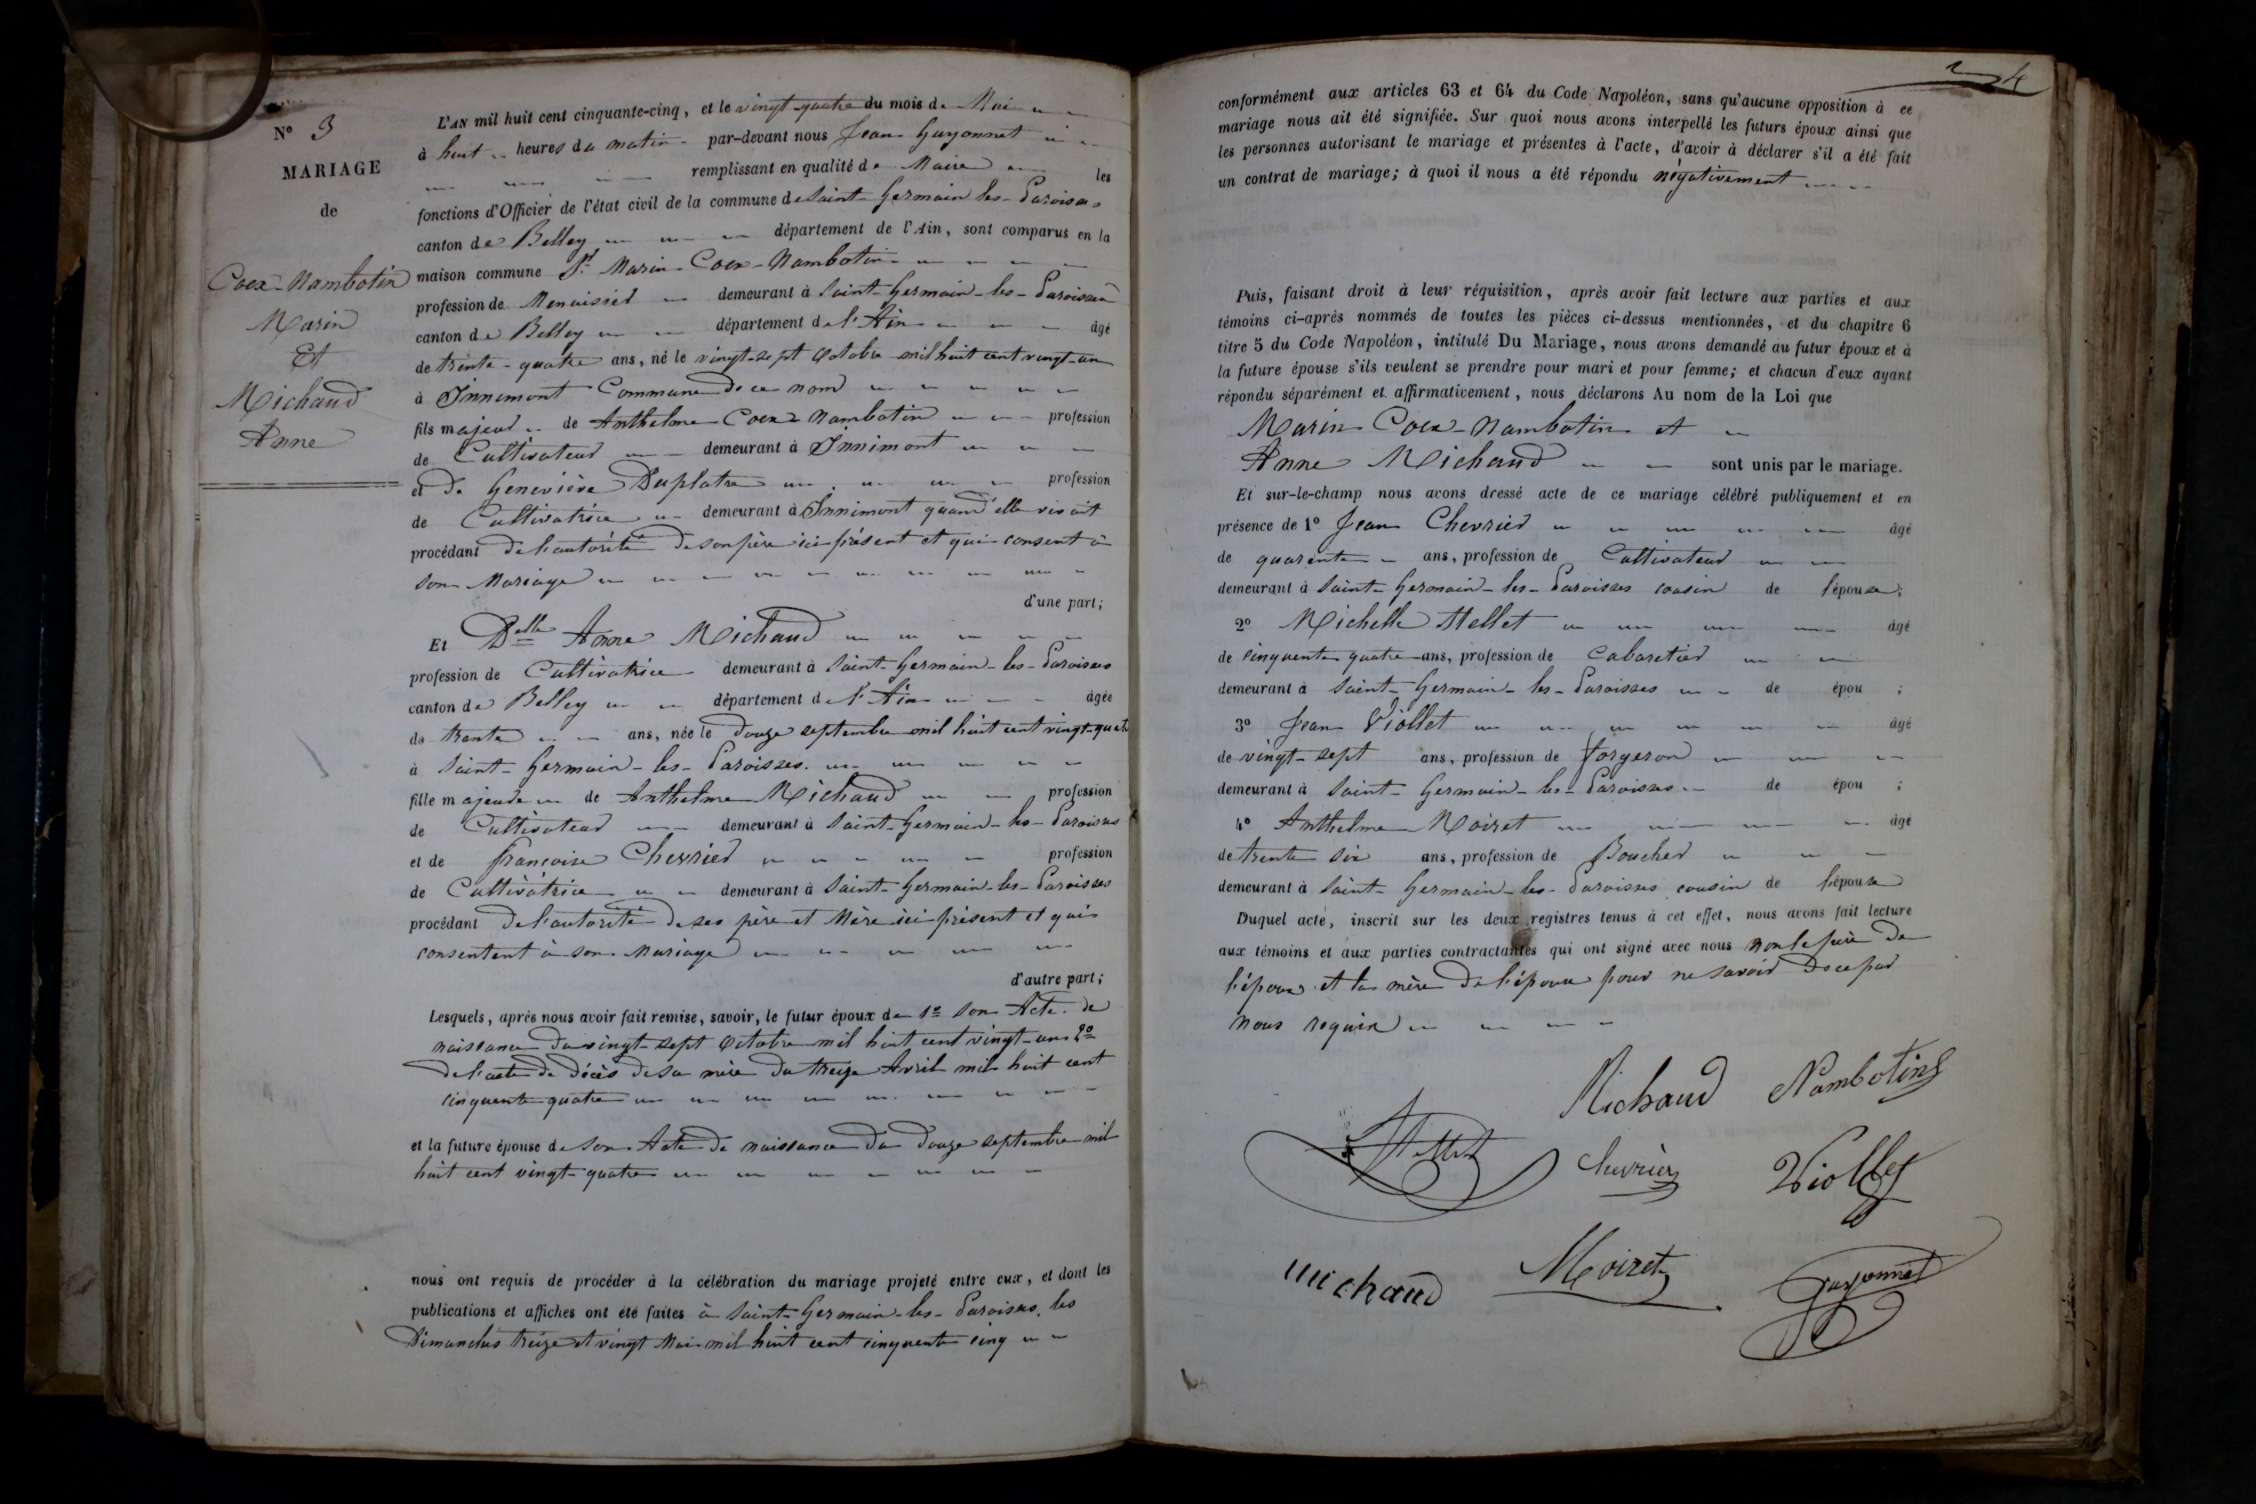 N° 3
MARIAGE
de
Coex-Nambotin
Marin
Et
Michaud
Anne
L'AN mil huit cent cinquante-cinq, et le vingt-quatre du mois de Mai
à huit heures du matin par-devant nous Jean Guyonnet
remplissant en qualité de Maire les
fonctions d'Officier de l'état civil de la commune de Saint-Germain-les-Paroisses
canton de Belley département de l'Ain, sont comparus en la
maison commune Sr Marin Coex-Nambotin
profession de Menuisier demeurant à Saint-Germain-les-Paroisses
canton de Belley département de l'Ain âgé
de trente-quatre ans, né le vingt-sept Octobre mil huit cent vingt-un
à Innimont Commune de ce nom
fils majeur de Anthelme Coex-Nambotin profession
de Cultivateur demeurant à Innimont
et de Geneviève Duplatre profession
de Cultivatrice demeurant à Innimont quand elle vivait
procédant de l'autorité de son père ici présent et qui consent à
son Mariage
d'une part;
Et Delle Anne Michaud
profession de Cultivatrice demeurant à Saint-Germain-les-Paroisses
canton de Belley département de l'Ain âgée
de trente ans, née le douze septembre mil huit cent vingt-quatre
à Saint-Germain-les-Paroisses
fille majeure de Anthelme Michaud profession
de Cultivateur demeurant à Saint-Germain-les-Paroisses
et de françoise Chevrier profession
de Cultivatrice demeurant à Saint-Germain-les-Paroisses
procédant de l'autorité de ses père et Mère ici présent et qui
consentent à son Mariage
d'autre part;
Lesquels, après nous avoir fait remise, savoir, le futur époux de 1° son Acte de
naissance du vingt-sept Octobre mil huit cent vingt-un 2°
de l'acte de décès de sa mère du treize Avril mil huit cent
cinquante quatre
et la future épouse de son Acte de naissance du douze septembre mil
huit cent vingt-quatre
nous ont requis de procéder à la célébration du mariage projeté entre eux, et dont les
publications et affiches ont été faites à Saint-Germain-les-Paroisses, les
Dimanches treize et vingt Mai mil huit cent cinquante cinq
4
conformément aux articles 63 et 64 du Code Napoléon, sans qu'aucune opposition à ce
mariage nous ait été signifiée. Sur quoi nous avons interpellé les futurs époux ainsi que
les personnes autorisant le mariage et présentes à l'acte, d'avoir à déclarer s'il a été fait
un contrat de mariage; à quoi il nous a été répondu négativement
Puis, faisant droit à leur réquisition, après avoir fait lecture aux parties et aux
témoins ci-après nommés de toutes les pièces ci-dessus mentionnées, et du chapitre 6
titre 5 du Code Napoléon, intitulé Du Mariage, nous avons demandé au futur époux et à
la future épouse s'ils veulent se prendre pour mari et pour femme; et chacun d'eux ayant
répondu séparément et affirmativement, nous déclarons Au nom de la Loi que
Marin Coex-Nambotin et
Anne Michaud sont unis par le mariage.
Et sur-le-champ nous avons dressé acte de ce mariage célébré publiquement et en
présence de 1° Jean Chevrier âgé
de quarente ans, profession de Cultivateur
demeurant à Saint-Germain-les-Paroisses cousin de l'épouse;
2° Michelle Hellet âgé
de cinquente quatre ans, profession de Cabaretier
demeurant à Saint-Germain-les-Paroisses de épou ;
3° Jean Viollet âgé
de vingt-sept ans, profession de forgeron
demeurant à Saint-Germain-les-Paroisses de épou ;
4° Anthelme Moiret âgé
de trente six ans, profession de Boucher
demeurant à Saint-Germain-les-Paroisses cousin de l'épouse
Duquel acte, inscrit sur les deux registres tenus à cet effet, nous avons fait lecture
aux témoins et aux parties contractantes qui ont signé avec nous non le père de
l'époux et la mère de l'épouse pour ne savoir de ce par
nous requis
Michaud Nambotin
Hellet chevrier Viollet
michaud Moiret Guyonnet